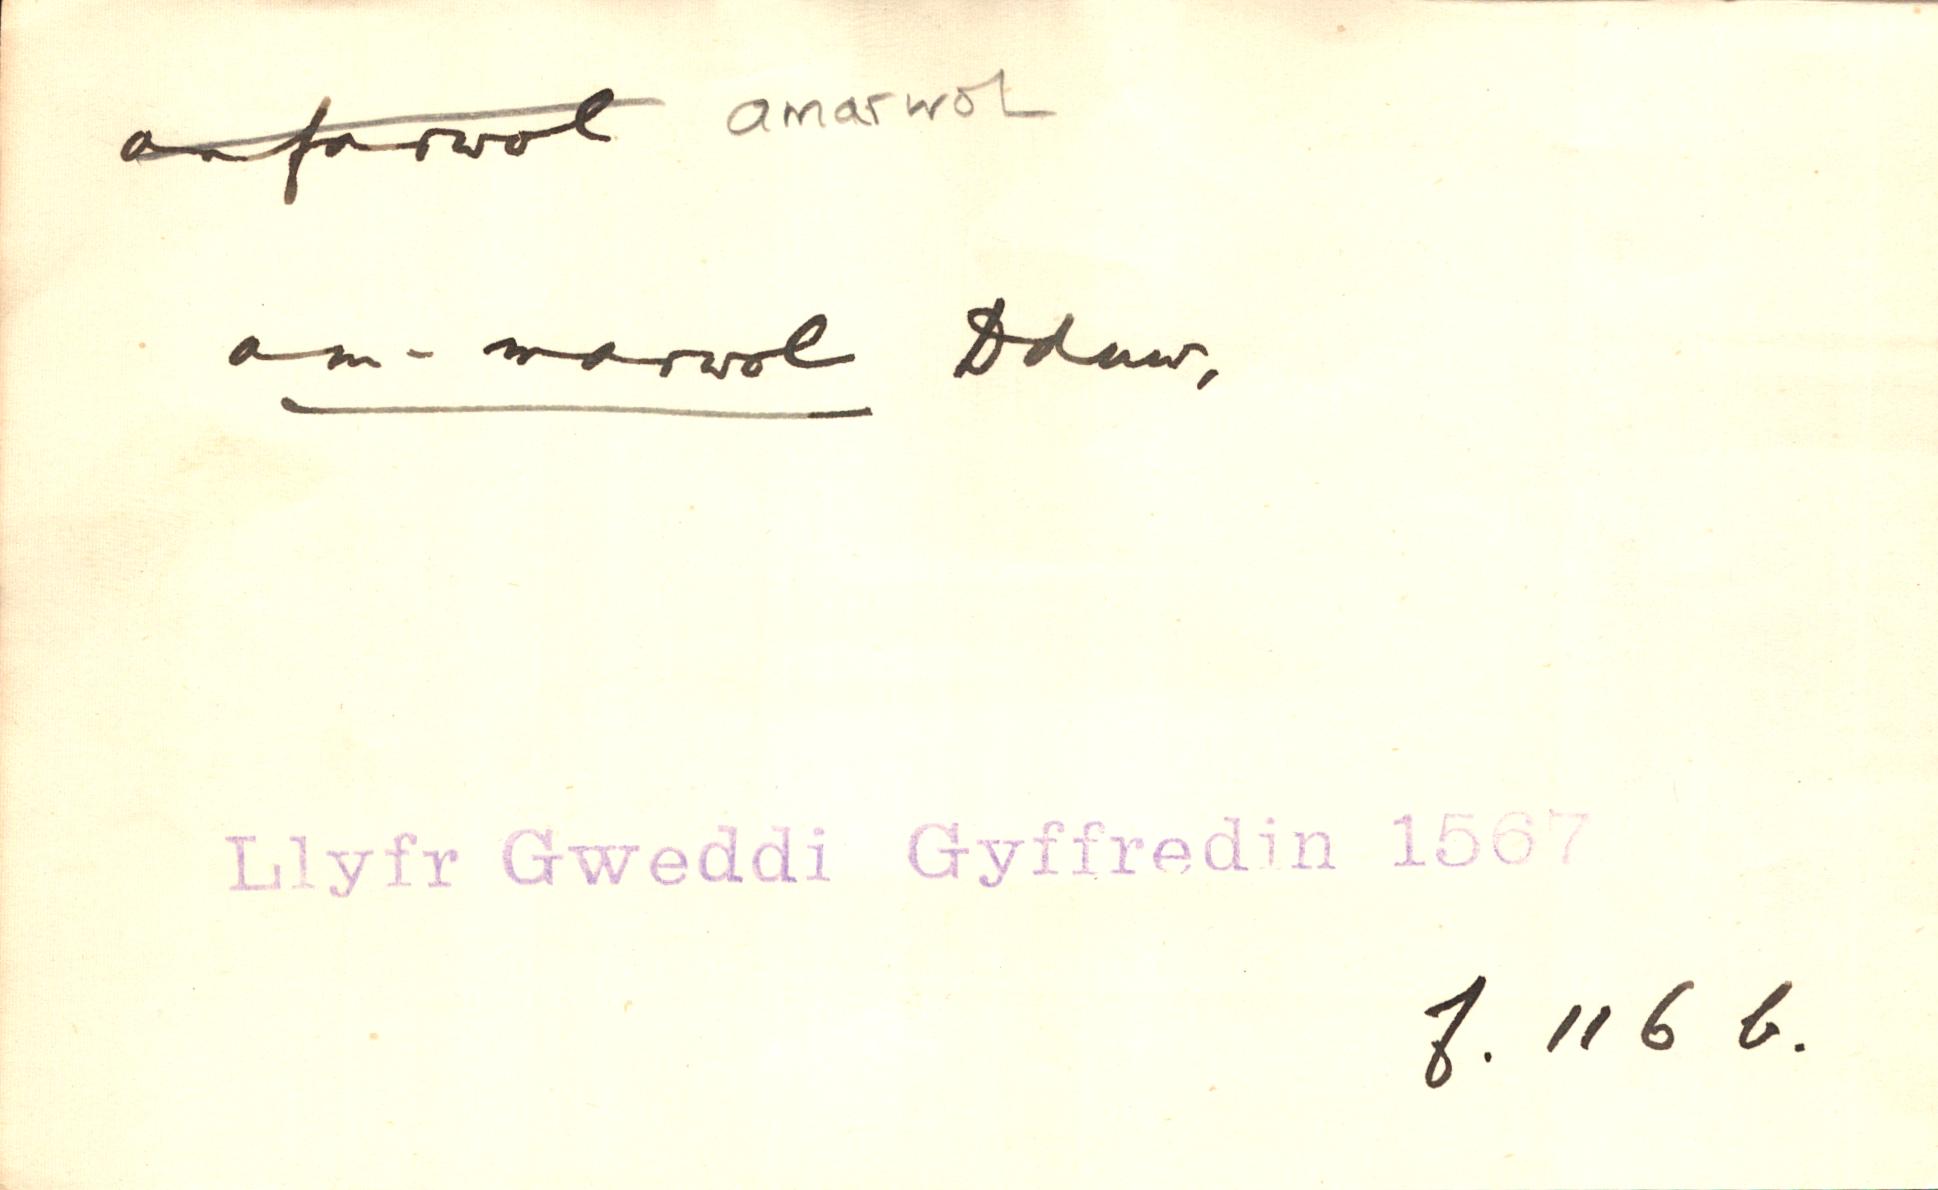 anfarwol amarwol
am-marwol Dduw,
Llyfr Gweddi Gyffredin 1567
f. 116 b.